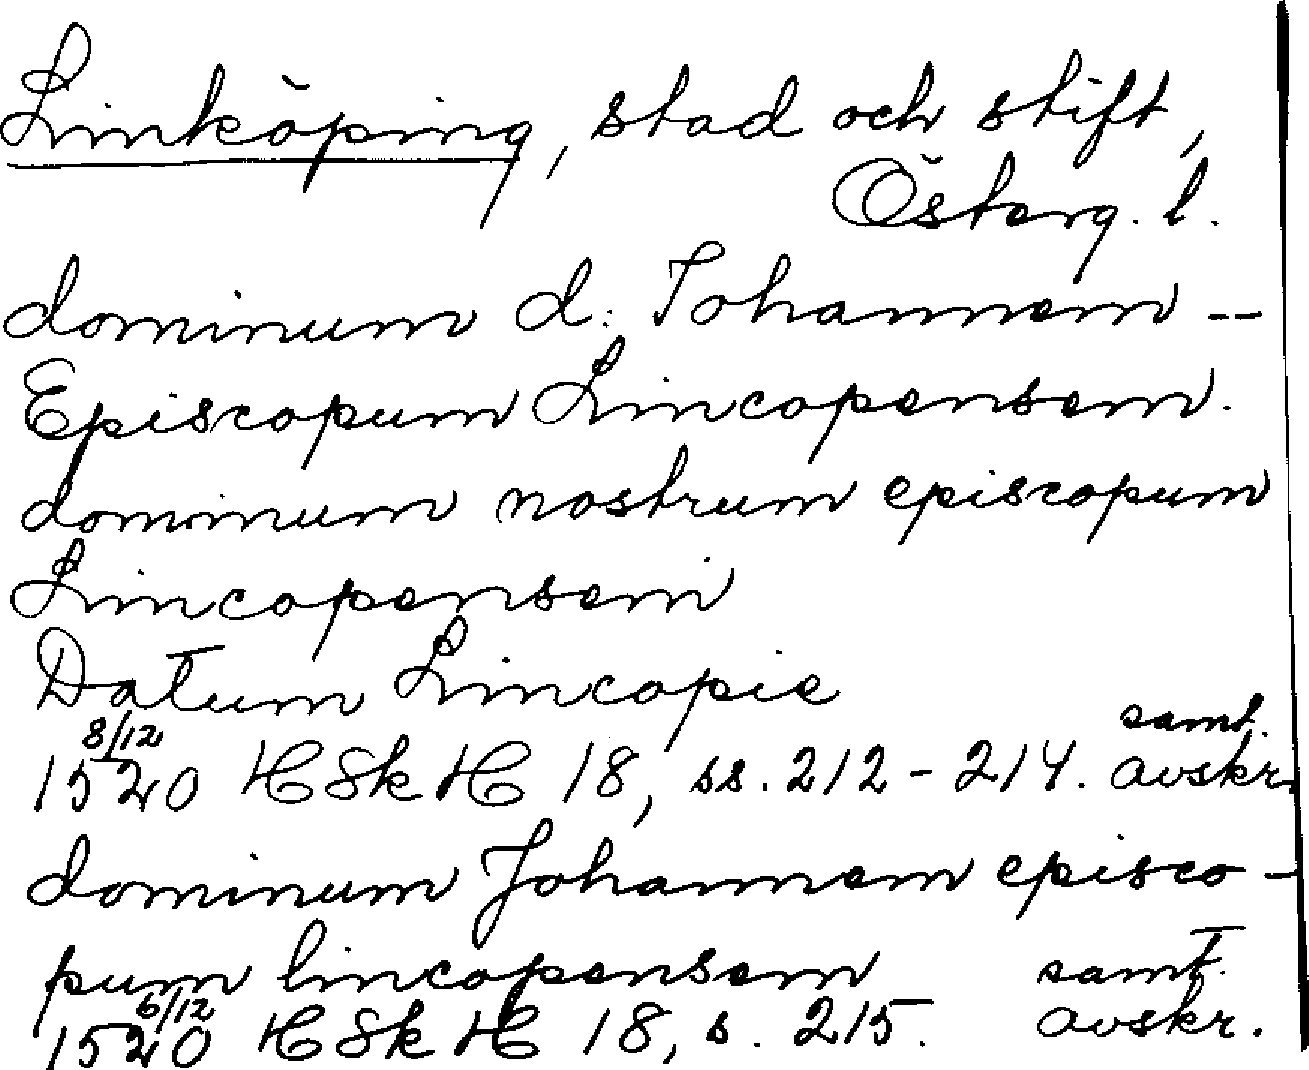 Linköping, stad och stift,
Österg. l.
dominum d: Johannem --
Episcopum Lincopensem.
dominum nostrum episcopum
Lincopensem
Datum Lincopie
1520 8/12 HSkH 18, ss. 212-214. samt. avskr.
dominum Johannem episco-
pum lincopensem
1520 6/12 HSkH 18, s. 215. samt. avskr.